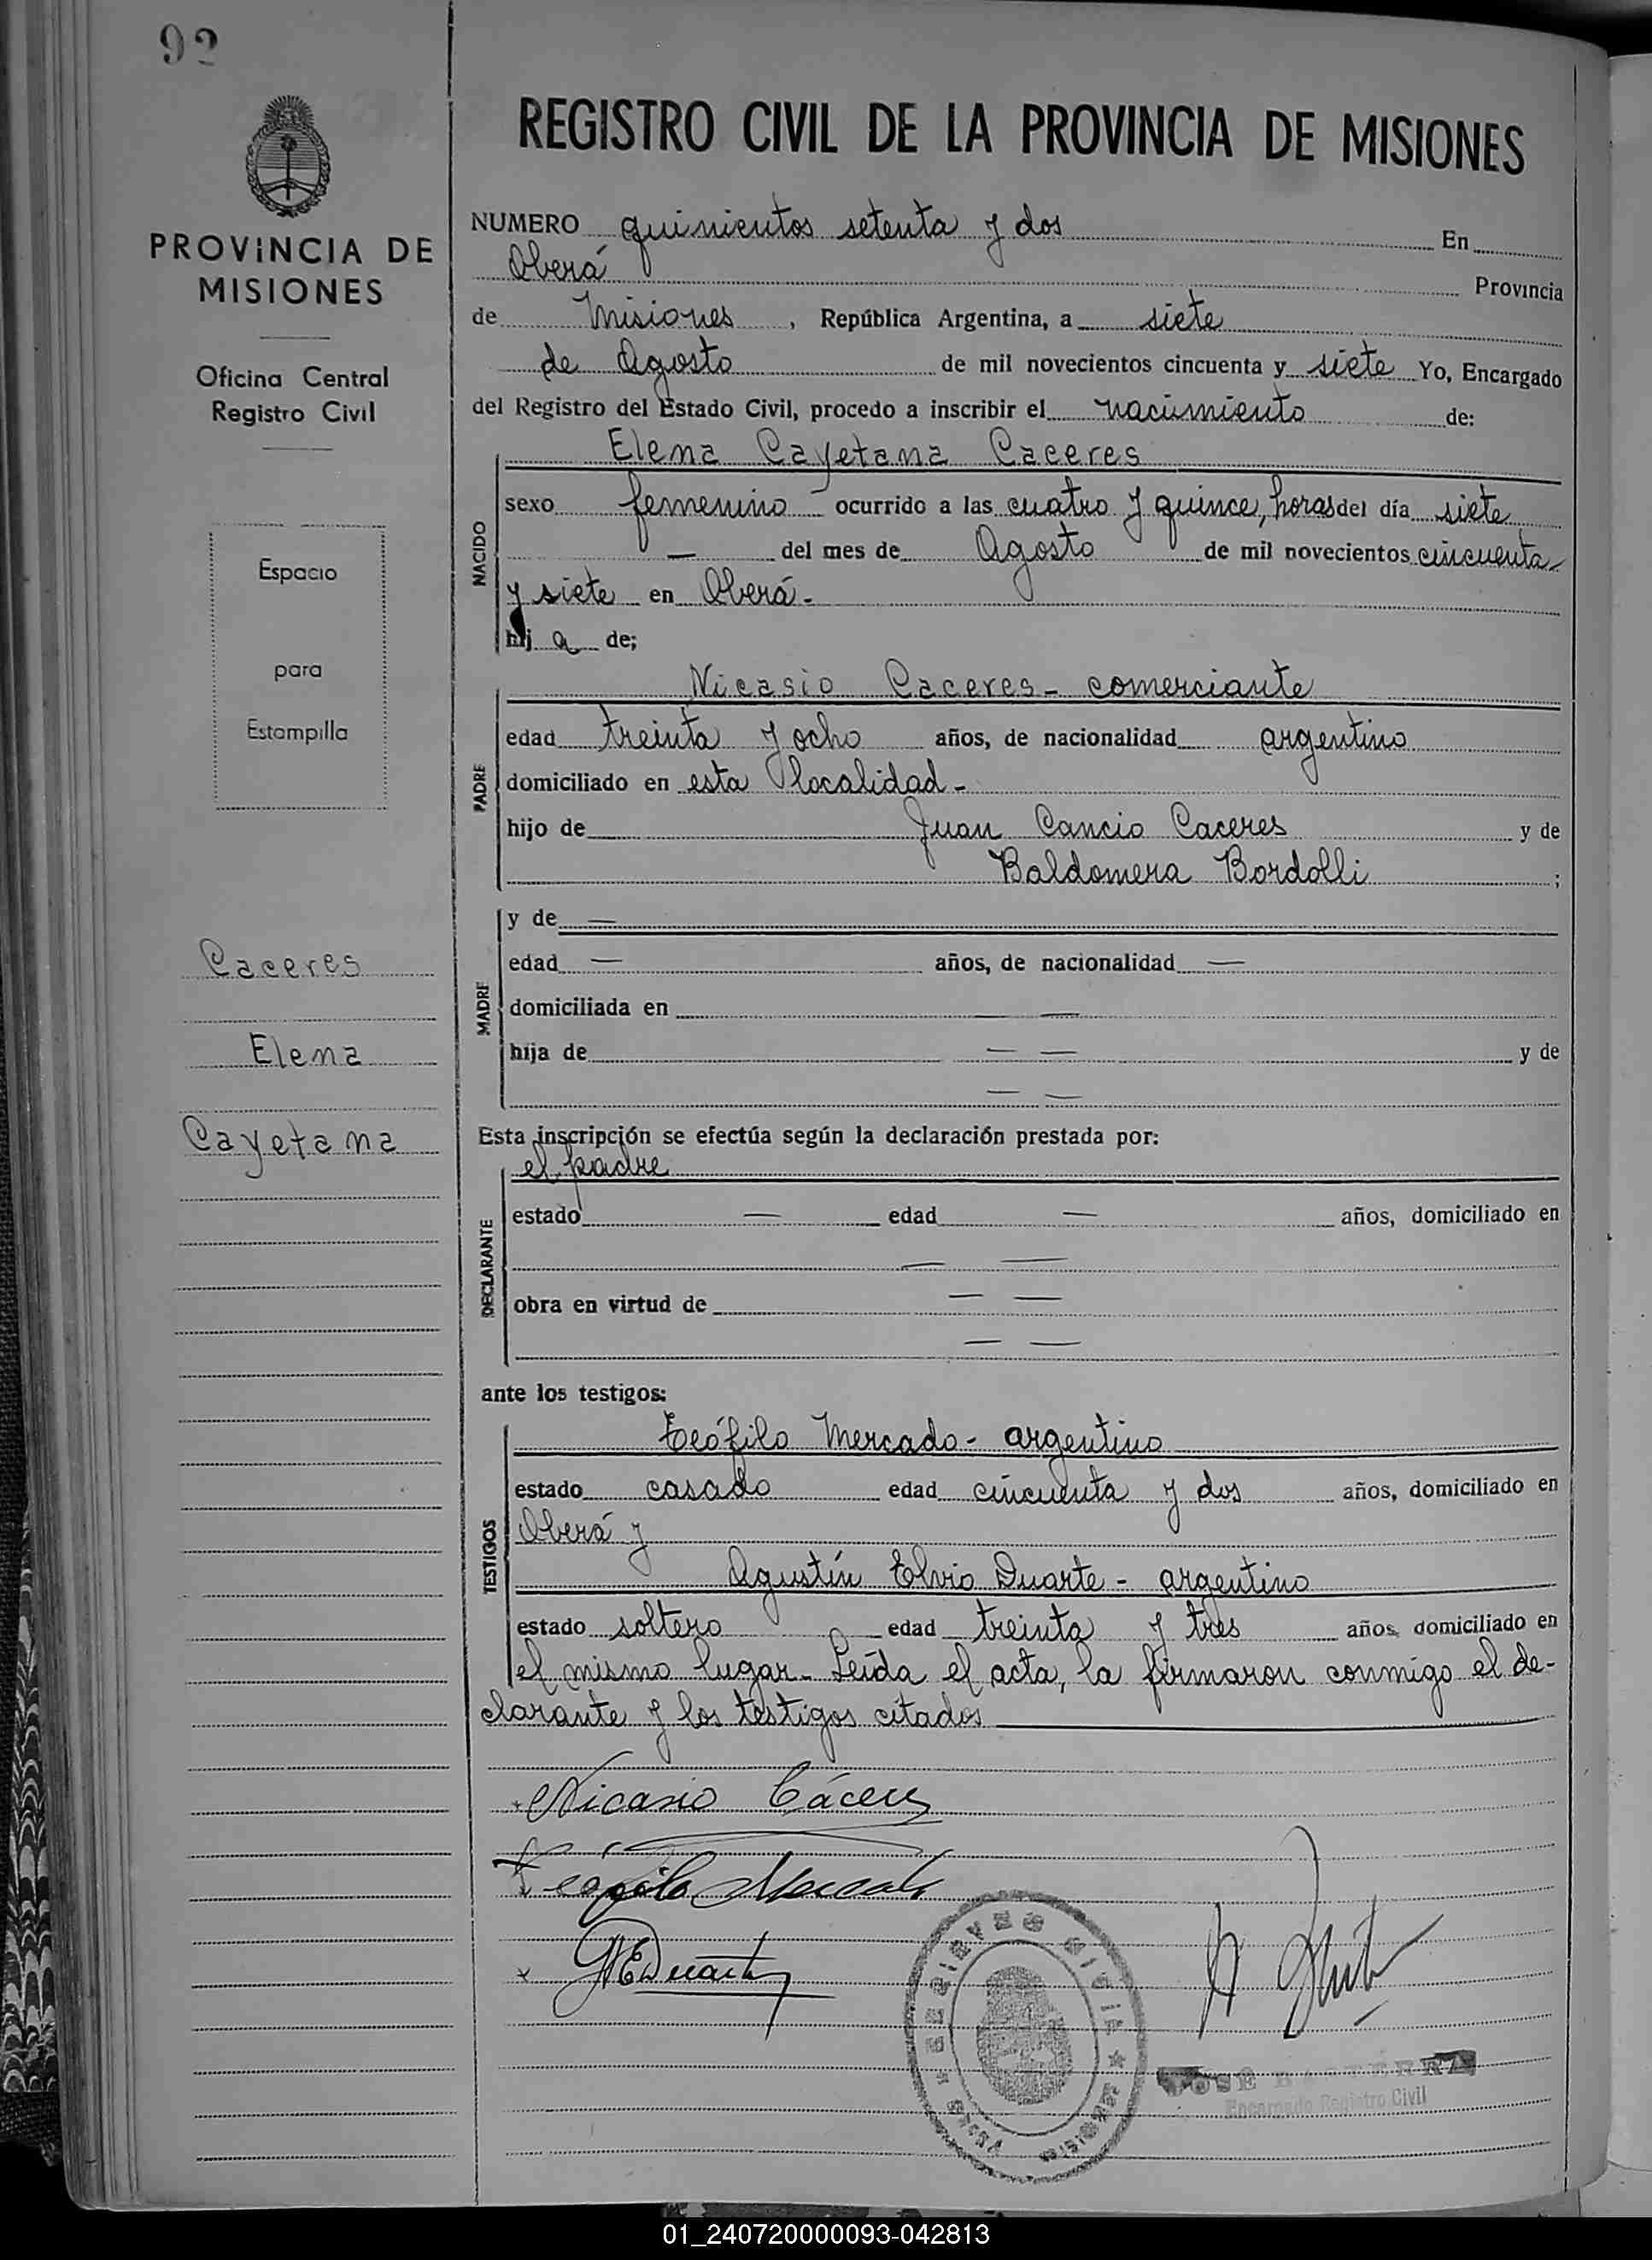 92
PROVINCIA DE
MISIONES
Oficina Central
Registro Civil
Espacio
para
Estampilla
Caceres
Elena
Cayetana
REGISTRO CIVIL DE LA PROVINCIA DE MISIONES
NUMERO quinientos setenta y dos En
Oberá Provincia
de Misiones, República Argentina, a siete
de Agosto de mil novecientos cincuenta y siete Yo, Encargado
del Registro del Estado Civil, procedo a inscribir el nacimiento de:
NACIDO
Elena Cayetana Caceres
sexo femenino - ocurrido a las cuatro y quince, horas del día siete
— del mes de Agosto de mil novecientos cincuenta
y siete en Oberá.-
hij a de;
PADRE
Nicasio Caceres - comerciante
edad treinta y ocho años, de nacionalidad argentino
domiciliado en esta localidad -
hijo de Juan Cancio Caceres y de
Baldomera Bordolli ;
MADRE
y de —
edad — años, de nacionalidad —
domiciliada en — —
hija de — — y de
— —
Esta inscripción se efectúa según la declaración prestada por:
DECLARANTE
el padre
estado — edad — años, domiciliado en
— —
obra en virtud de — —
— —
ante los testigos:
TESTIGOS
Teófilo Mercado - argentino
estado casado edad cincuenta y dos años, domiciliado en
Oberá y
Agustín Elvio Duarte - argentino
estado soltero edad treinta y tres años, domiciliado en
el mismo lugar - Leída el acta, la firmaron conmigo el de-
clarante y los testigos citados
Nicasio Cáceres
Teófilo Mercado
AEDuarte
REGISTRO CIVIL
JOSE
Encargado Registro Civil
01_240720000093-042813